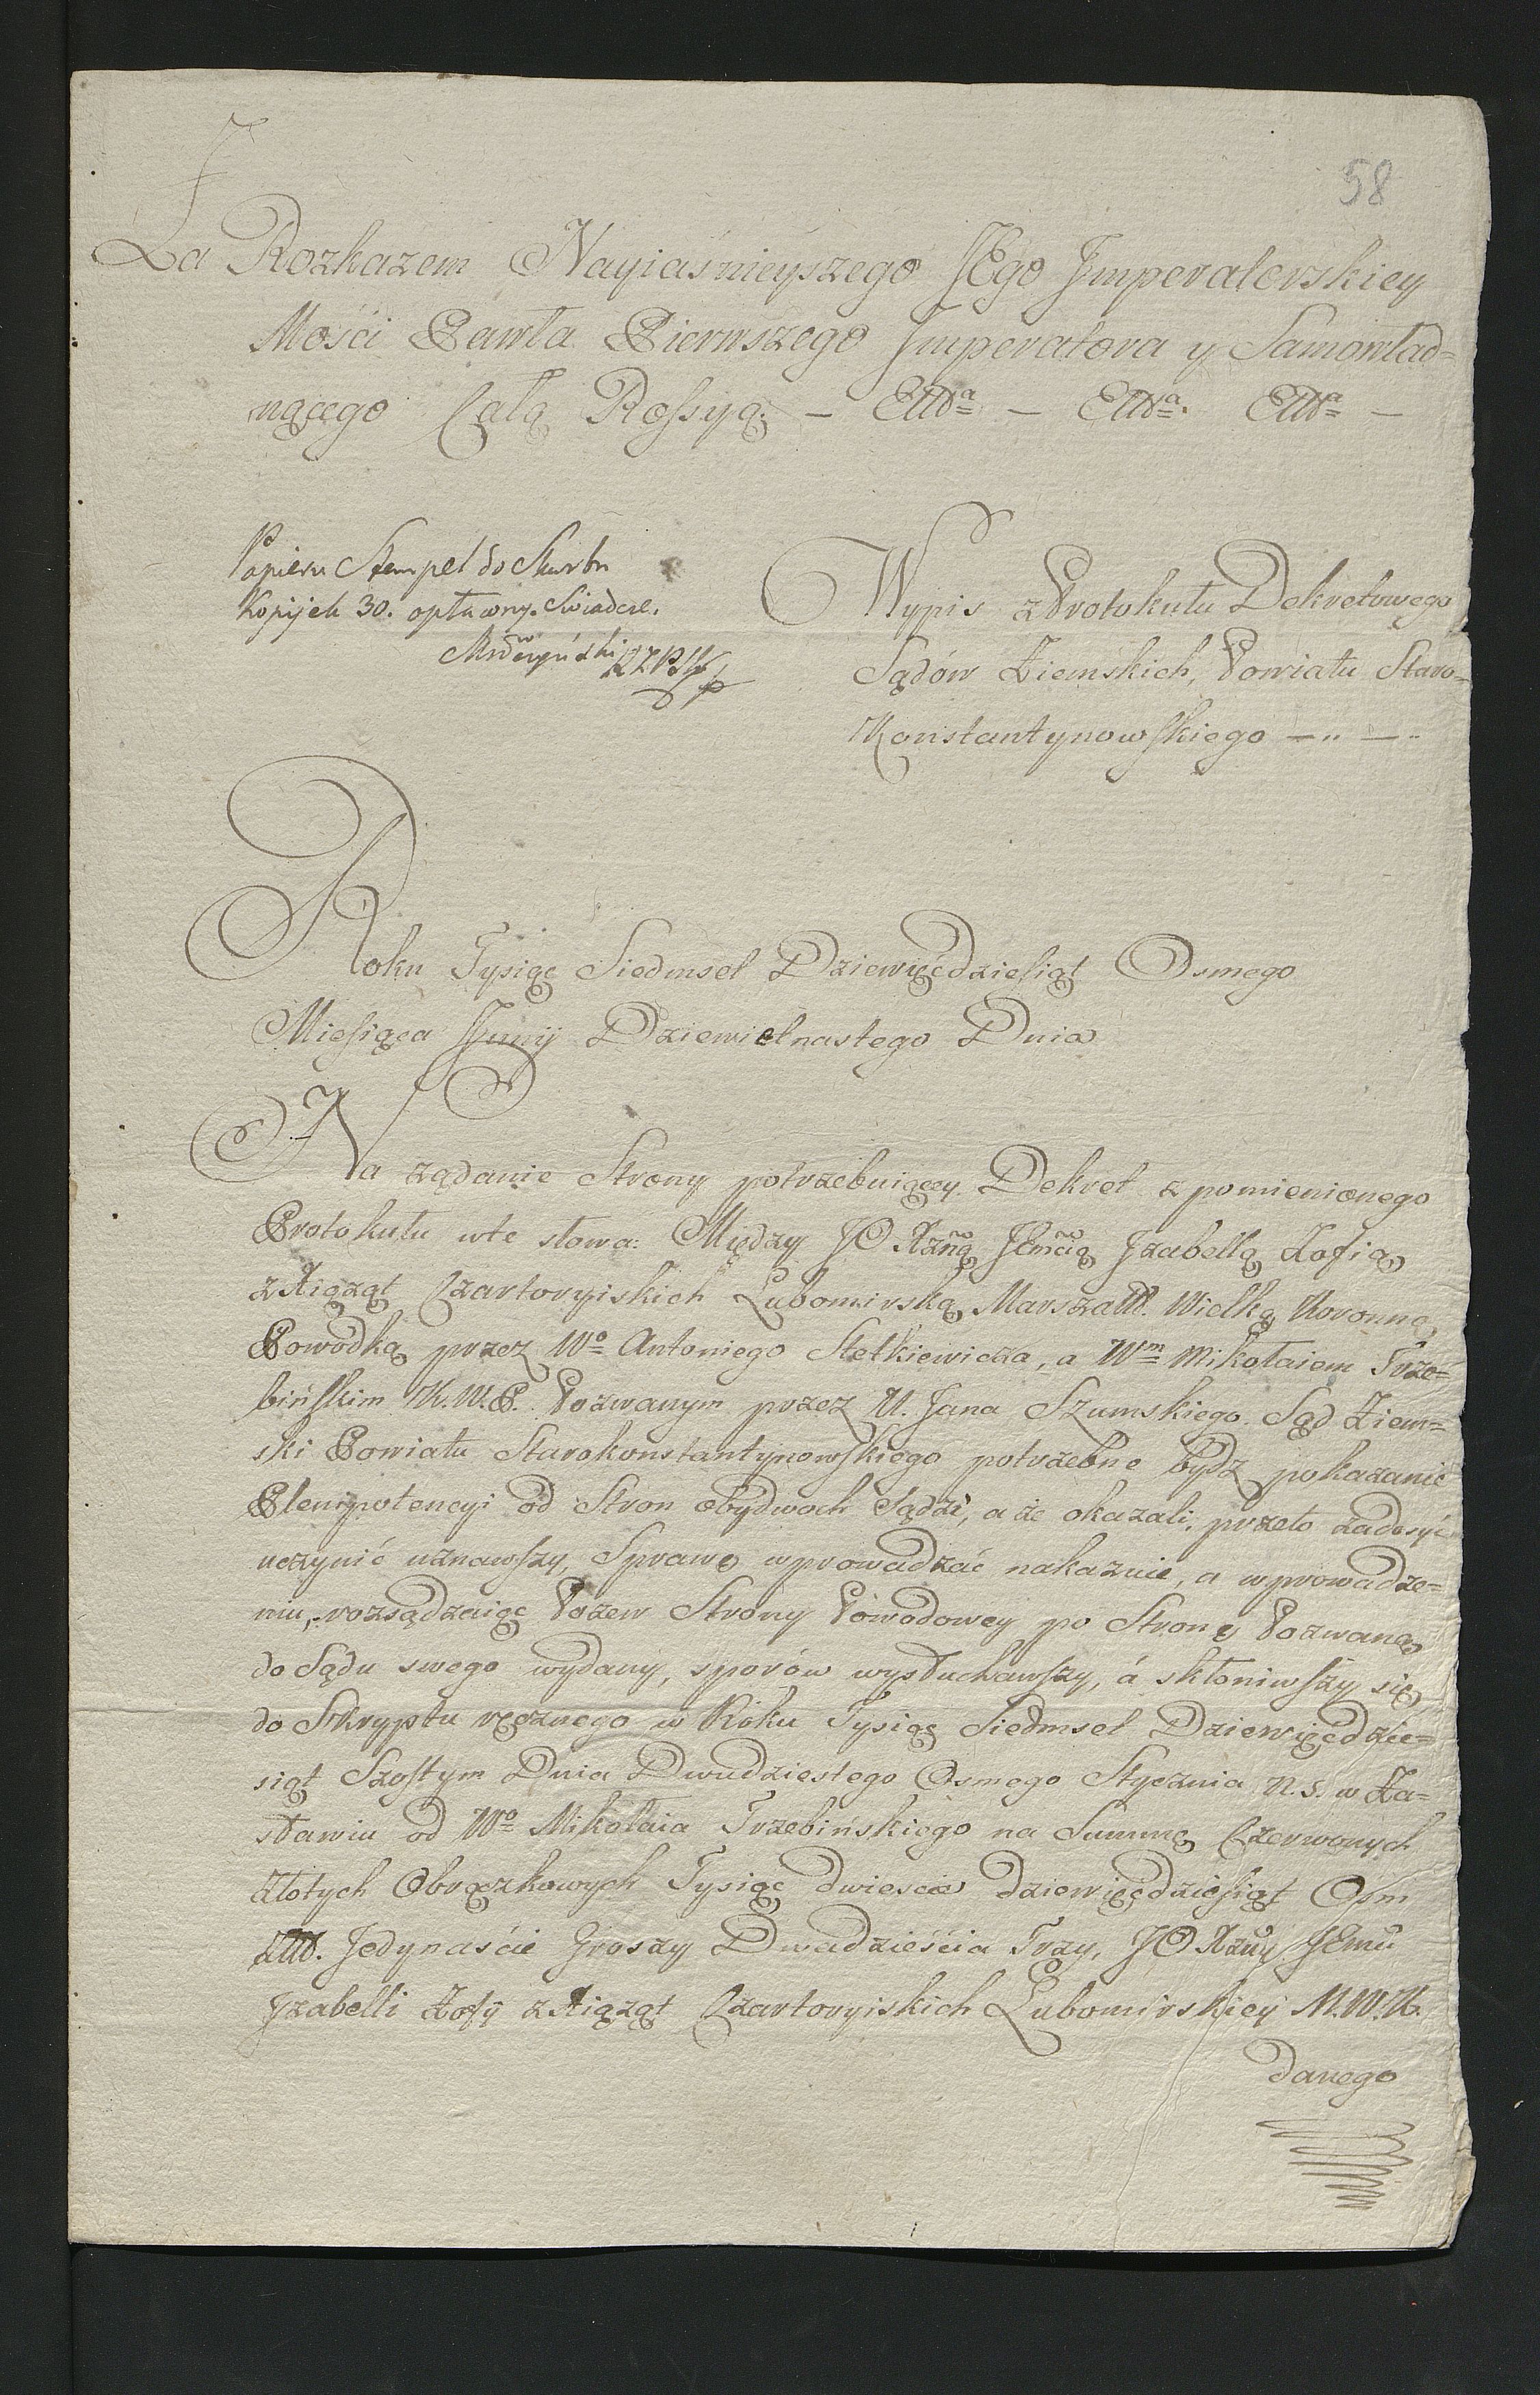 58
Za Rozkazem Nayiaśnieyszego JEgo Jmperatorskiey
Mości Pawła Pierwszego Jmperatora y Samowład=
nącego Całą Rossyą. — Ettaᵃ — Ettaᵃ. Ettaᵃ —
Papieru Stempel do Skarbu
Kopijek 30. opłacony. Świadczę.
Wypis z Protokułu Dekretowego
Sądów Ziemskich, Powiatu Staro=
Konstantynowskiego —..—..
Roku Tysiąc Siedmset Dziewięćdziesiąt Osmego
Miesiąca Junij Dziewietnastego Dnia
Na żądanie Strony potrzebuiącey Dekret z pomienionego
Protokułu wte słowa: Między JO Xzną JEmcią Jzabellą Zofią
z Xiążąt Czartoryiskich Lubomirską Marszałł. Wielką Koronną,
Powodką przez Wº Antoniego Stetkiewicza, a Wᵐ Mikołaiem Trze=
bińskim K.W.P. Pozwanym przez U. Jana Szumskiego. Sąd Ziem=
ski Powiatu Starokonstantynowskiego potrzebne bydz pokazanie
Plenipotencyi od Stron obydwoch Sądzi, a że okazali, przeto zadosyć
uczynić uznawszy, Sprawę wprowadzać nakazuie, a wprowadze=
niu, rozsądzaiąc Pozew Strony Powodowey po Stronę Pozwaną
do Sądu swego wydany, sporów wysłuchawszy, á skłoniwszy się
do Skryptu ręcznego w Roku Tysiąc Siedmset Dziewięćdzie=
siąt Szostym Dnia Dwudziestego Osmego Stycznia n.s. w Za=
sławiu od Wº Mikołaia Trzebińskiego na Summę Czerwonych
złotych Obrączkowych Tysiąc dwieście dziewięćdziesiąt Ośm
złł. Jedynaście Groszy Dwadzieścia Trzy, JO Xzny JEmci
Jzabelli Zofij z Xiążąt Czartoryiskich Lubomirskiey M.W.K.
danego